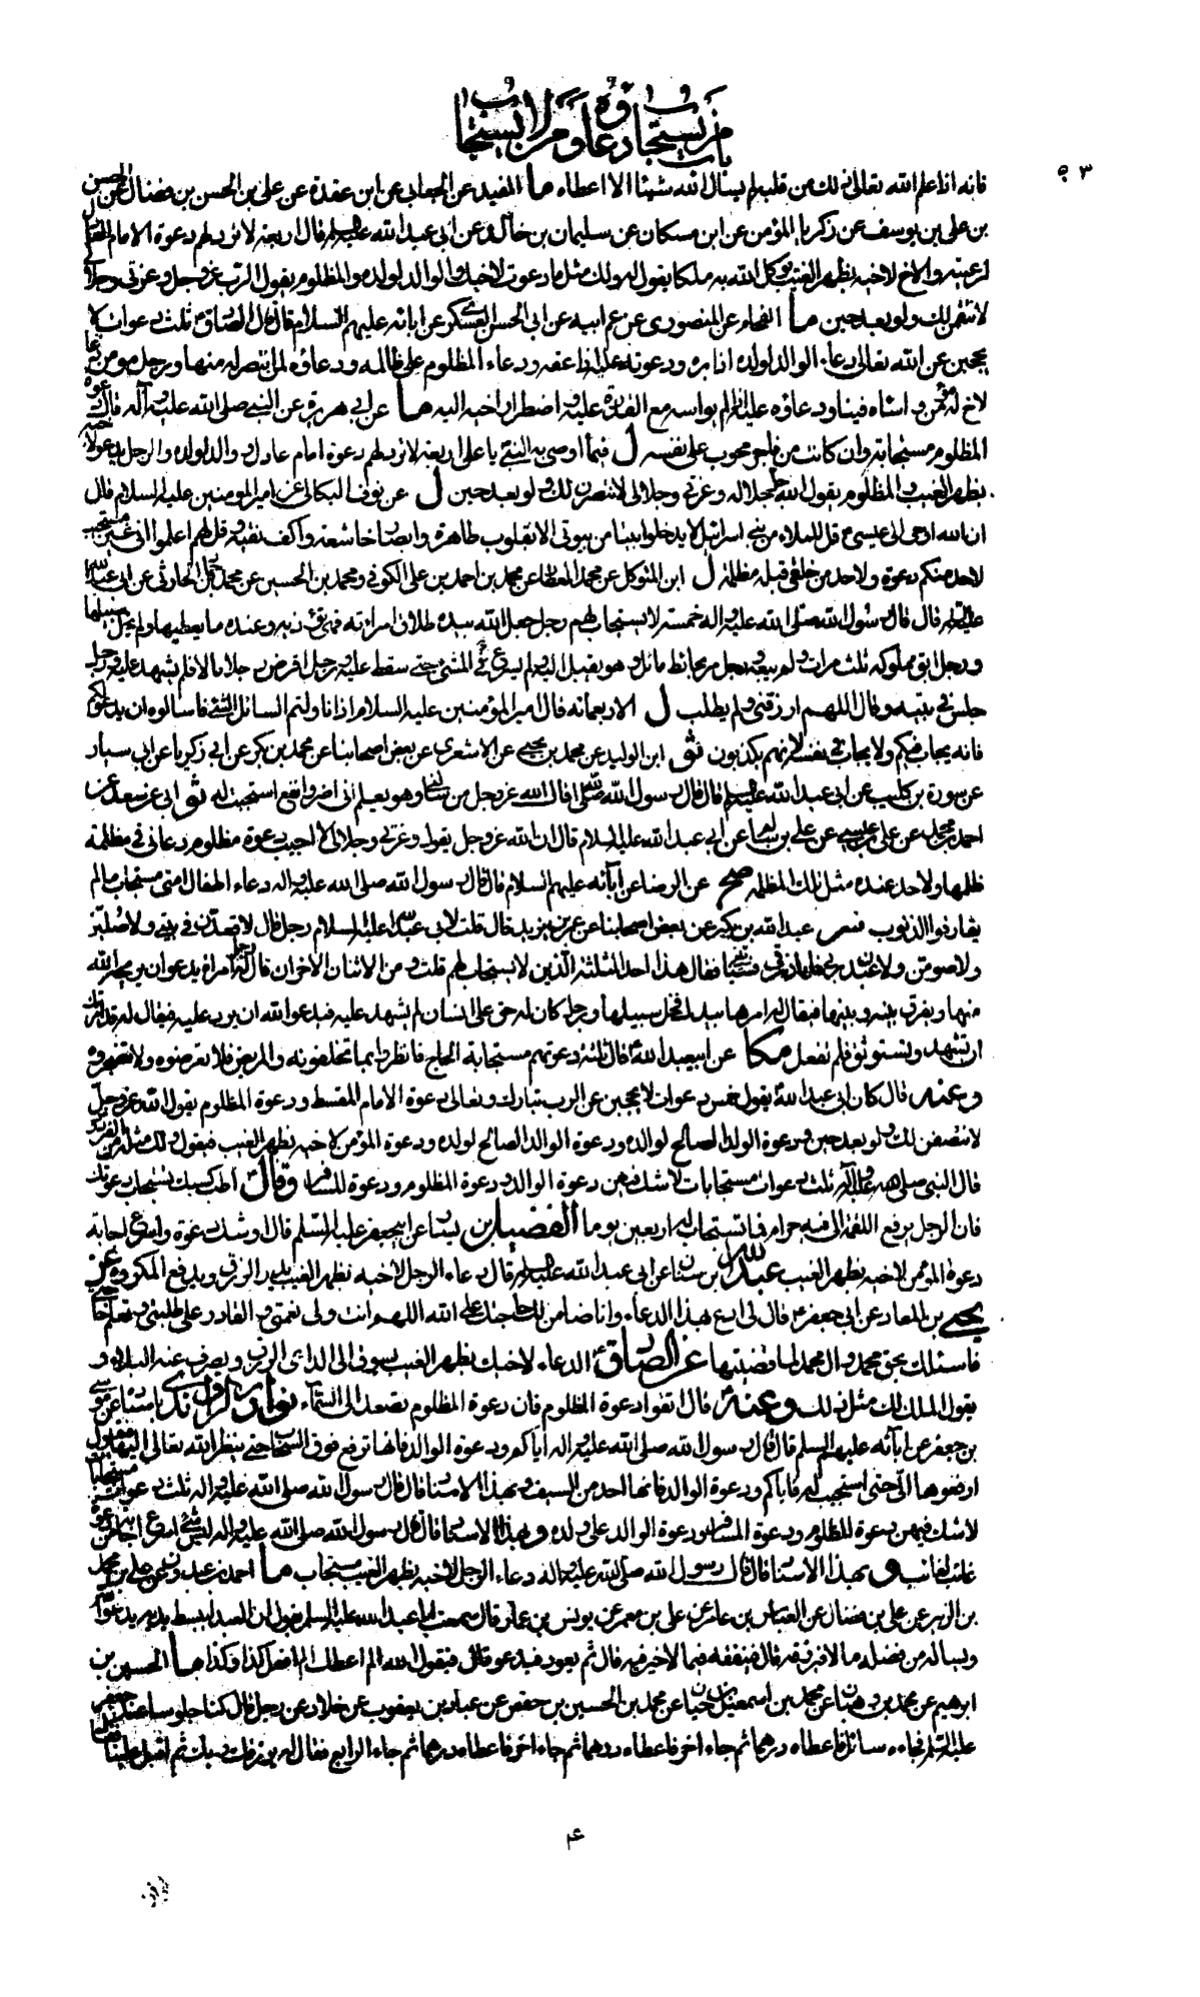 باب من يستجاب دعاؤه ومن لا يستجاب
٥٣
فانه اذا علم الله تعالى ذلك من قلبه لم يسال الله شيئا الا اعطاه ما المفيد عن الجعابى عن ابن عقدة عن على بن الحسن بن فضال عن الحسن
بن على بن يوسف عن زكريا المؤمن عن ابن مسكان عن سليمان بن خالد عن ابى عبد الله عليه السلم قال اربعة لا ترد لهم دعوة الامام العادل
لرعيته والاخ لاخيه بظهر الغيب يوكل الله به ملكا يقول له ولك مثل ما دعوت لاخيك والوالد لولده والمظلوم يقول الرب عز وجل وعزتى وجلالى
لانتقمن لك ولو بعد حين ما الفحام عن المنصورى عن عم ابيه عن ابى الحسن العسكرى عن ابائه عليهم السلام قال قال الصادق ثلث دعوات لا
يحجبن عن الله تعالى دعاء الوالد لولده اذا بره ودعوته عليه اذا عقه ودعاء المظلوم على ظالمه ودعاؤه لمن انتصر له منها ورجل مومن دعا
لاخ له مؤمن واساه فينا ودعاؤه عليه اذا لم يواسه مع القدرة عليه واضطرار اخيه اليه ما عن ابى هريرة عن النبى صلى الله عليه وآله قال دعوة
المظلوم مستجابة وان كانت من فاجر محوب على نفسه ل فيما اوصى به النبى يا على اربعة لا ترد لهم دعوة امام عادل ووالد لولده والرجل يدعو لاخيه
بظهر الغيب والمظلوم يقول الله جل جلاله وعزتى وجلالى لانتصرن لك ولو بعد حين ل عن نوف البكالى عن امير المومنين عليه السلام قال
ان الله اوحى الى عيسى ع قل للملاء من بنى اسرائيل لا يدخلوا بيتا من بيوتى الا بقلوب طاهرة وابصار خاشعة واكف نقية وقل لهم اعلموا انى غير مستجيب
لاحد منكم دعوة ولاحد من خلقى قبله مظلمة ل ابن المتوكل عن محمد العطار عن محمد بن احمد بن على الكوفى ومحمد بن الحسين عن محمد بن حماد الحارثى عن ابى عبد الله
عليه السلم قال قال رسول الله صلى الله عليه واله خمسة لا يستجاب لهم رجل جعل الله بيده طلاق امراته فهى تؤذيه وعنده ما يعطيها ولم يخل سبيلها
ورجل ابق مملوكه ثلث مرات ولم يبعه ورجل مر بحائط مائل وهو يقبل اليه ولم يسرع المشى حتى سقط عليه ورجل اقرض رجلا مالا فلم يشهد عليه ورجل
جلس فى بيته وقال اللهم ارزقنى ولم يطلب ل الاربعمائة قال امير المؤمنين عليه السلام اذا ناولتم السائل الشئ فاسالوه ان يدعو لكم
فانه يجاب فيكم ولا يجاب فى نفسه لانهم يكذبون ثو ابن الوليد عن محمد بن يحيى عن الاشعرى عن بعض اصحابنا عن محمد بن بكر عن ابى زكريا عن ابى سيار
عن سورة بن كليب عن ابى عبد الله عليه السلم قال قال رسول الله ص قال الله عز وجل من سالنى وهو يعلم انى اضر وانفع استجبت له ثو ابى عن سعد عن
احمد بن محمد عن على بن عيسى عن على بن سالم عن ابى عبد الله عليه السلام قال ان الله عز وجل يقول وعزتى وجلالى لا اجيب دعوة مظلوم دعانى فى مظلمة
ظلمها ولاحد عنده مثل تلك المظلمة صح عن الرضا عن آبائه عليهم السلام قال قال رسول الله صلى الله عليه واله دعاء اطفال امتى مستجاب ما لم
يقارفوا الذنوب عبد الله بن بكير عن بعض اصحابنا عن عمر بن يزيد قال قلت لابى عبد الله عليه السلام رجل قال لاقعدن فى بيتى ولاصلين
ولاصومن ولاعبدن ربى فاما رزقى فسياتينى فقال هذا احد الثلثة الذين لا يستجاب لهم قلت ومن الاثنان الاخران قال رجل له امراة يدعو ان يريحه الله
منها ويفرق بينه وبينها فيقال له امرها بيدك فخل سبيلها ورجل كان له حق على انسان لم يشهد عليه فيدعو الله ان يرد عليه فيقال له قد امرتك
ان تشهد وتستوثق فلم تفعل مكا عن ابى عبد الله ع قال ثلثة دعوتهم مستجابة الحاج فانظروا بما تخلفونه والمريض فلا تعرضوه ولا تضجروه
وعنه قال كان ابى عبد الله ع يقول خمس دعوات لا يحجبن عن الرب تبارك وتعالى دعوة الامام المقسط ودعوة المظلوم يقول الله عز وجل
لانتصفن لك ولو بعد حين ودعوة الولد الصالح لوالده ودعوة الوالد الصالح لولده ودعوة المؤمن لاخيه بظهر الغيب فيقول ولك مثله
قال النبى صلى الله عليه وآله ثلث دعوات مستجابات لا شك فيهن دعوة الوالد ودعوة المظلوم ودعوة المسافر وقال اطب كسبك تستجاب دعوتك
فان الرجل يرفع اللقمة الى فيه حرام فما تستجاب له اربعين يوما الفضيل بن يسار عن ابى جعفر عليه السلم قال اوشك دعوة واسرع لجابة
دعوة المؤمن لاخيه بظهر الغيب عبد الله بن سنان عن ابى عبد الله عليه السلم قال دعاء الرجل لاخيه بظهر الغيب يدر الرزق ويدفع المكروه عن
يحيى بن المعاد عن ابى جعفر ع قال لى ادع بهذا الدعاء وانا ضامن لك حاجتك على الله اللهم انت ولى نعمتى والقادر على طلبتى وتعلم حاجتى
فاسئلك بحق محمد وال محمد لما قضيتها عن الصادق ع الدعاء لاخيك بظهر الغيب يسوق الى الداعى الرزق ويصرف عنه البلاء و
يقول الملك لك مثل ذلك وعنه ع قال اتقوا دعوة المظلوم فان دعوة المظلوم يصعد الى السماء نوادر الراوندى باسناده عن موسى
بن جعفر عن ابائه عليهم السلم قال قال رسول الله صلى الله عليه واله اياكم ودعوة الوالد فانها ترفع فوق السحاب حتى ينظر الله تعالى اليها فيقول
ارفعوها الى حتى استجيب له فاياكم ودعوة الوالد فانها احد من السيف وبهذا الاسناد قال قال رسول الله صلى الله عليه واله ثلث دعوات مستجابات
لا شك فيهن دعوة المظلوم ودعوة المسافر ودعوة الوالد على ولده وبهذا الاسناد قال قال رسول الله صلى الله عليه واله ليس شئ اسرع اجابة من دعوة
غائب لغائب وبهذا الاسناد قال قال رسول الله صلى الله عليه واله دعاء الرجل لاخيه بظهر الغيب مستجاب ما احمد بن عبدون عن على بن محمد
بن الزبير عن على بن فضال عن العباس بن عامر عن على بن معمر عن يونس بن عمار قال سمعت ابا عبد الله عليه السلم يقول ان العبد ليبسط يديه يدعو الله
ويساله من فضله مالا فيرزقه قال فينفقه فيما لا خير فيه قال ثم يعود فيدعو قال فيقول الله الم اعطك الم افعل كذا وكذا ما الحسين بن
ابرهيم عن محمد بن وهبان عن محمد بن اسمعيل بن حيان عن محمد بن الحسين بن حفص عن عباد بن يعقوب عن خلاد عن رجل قال كنا جلوسا عند جعفر
عليه السلم فجاءه سائل فاعطاه درهما ثم جاء اخر فاعطاه درهما ثم جاء اخر فاعطاه درهما ثم جاء الرابع فقال له يرزقك ربك ثم اقبل علينا فقال
٤